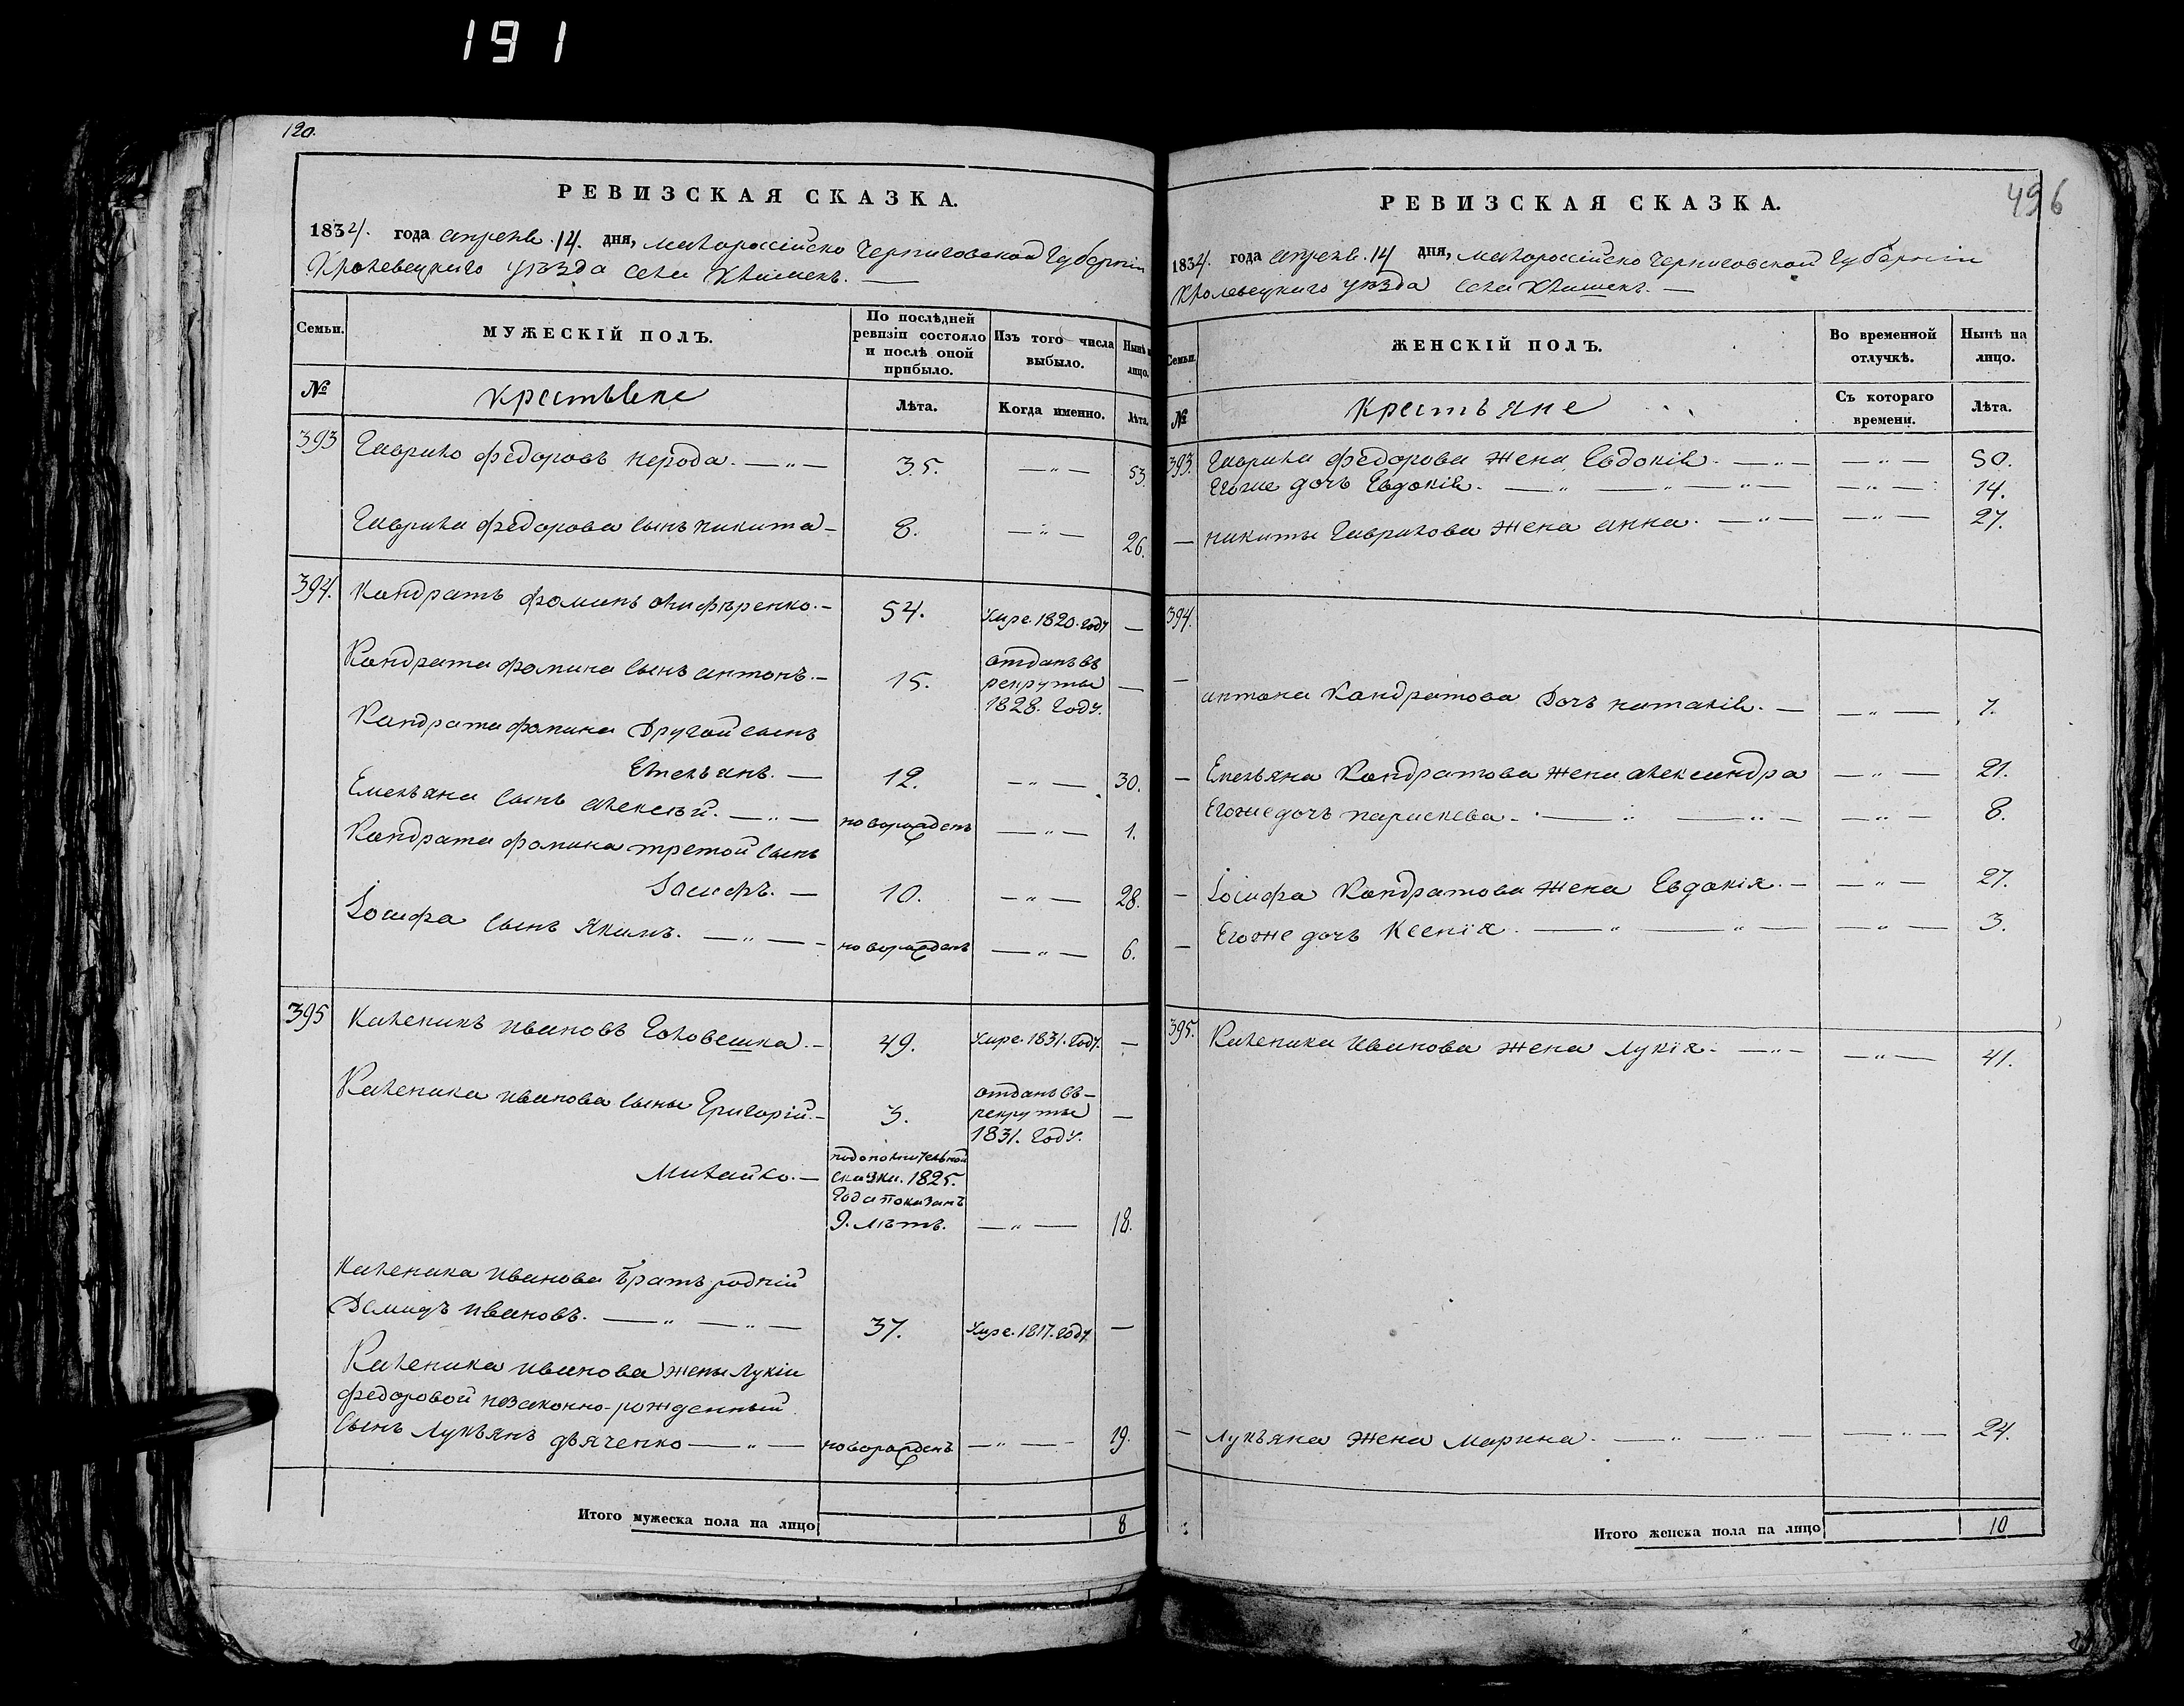 191
120.
РЕВИЗСКАЯ СКАЗКА.
1834. года апреля 14. дня, малороссійско Черниговской Губерніи
Кролевецкаго уѣзда села Клишекъ.
Семьи. МУЖЕСКІЙ ПОЛЪ. По послѣдней ревизіи состояло и послѣ оной прибыло. Изъ того числа выбыло. Нынѣ на лицо.
№ крестьяне Лѣта. Когда именно. Лѣта.
393 Гаврило федоровъ нерода. — 35. — 53.
Гаврила федорова сынъ никита — 8. — 26.
394. Кондратъ фоминъ олиференко. — 54. Умре. 1820. году —
Кондрата фомина сынъ антонъ. — 15. отданъ въ рекруты 1828. году. —
Кондрата фомина другой сынъ
Емельянъ. — 12. — 30.
Емельяна сынъ алексѣй. — новорожденъ — 1.
Кондрата фомина третой сынъ
Іосифъ. — 10. — 28.
Іосифа сынъ Якимъ. — новорожденъ — 6.
395 Каленикъ ивановъ Головешка. — 49. Умре. 1831. году. —
Каленика иванова сыны Григорій. — 3. отданъ въ рекруты 1831. году. —
Михайло. — подополнительной сказки. 1825. года показанъ 9. лѣтъ. — 18.
Каленика иванова братъ родній
Демидъ ивановъ. — 37. Умре. 1817. году. —
Каленика иванова жены Лукіи
федоровой незаконно-рожденный
сынъ Лукьянъ дяченко — новорожденъ — 19.
Итого мужеска пола на лицо 8
496
РЕВИЗСКАЯ СКАЗКА.
1834. года апреля. 14 дня, малороссійско Черниговской Губерніи
Кролевецкаго уѣзда села Клишекъ. —
Семьи. ЖЕНСКІЙ ПОЛЪ. Во временной отлучкѣ. Нынѣ на лицо.
№ Крестьяне Съ котораго времени. Лѣта.
393. Гаврила федорова жена Евдокія. — 50.
Егоже дочъ Евдокія. — 14.
— никиты Гаврилова жена анна. — 27.
394.
— антона Кондратова дочъ наталія. — 7.
— Емельяна Кондратова жена александра — 21.
Егоже дочъ параскева — 8.
— Іосифа Кондратова жена Евдокія. — 27.
— Егоже дочъ Ксенія. — 3.
395. Каленика иванова жена лукія. — 41.
— Лукьяна жена Марина. — 24.
Итого женска пола на лицо 10